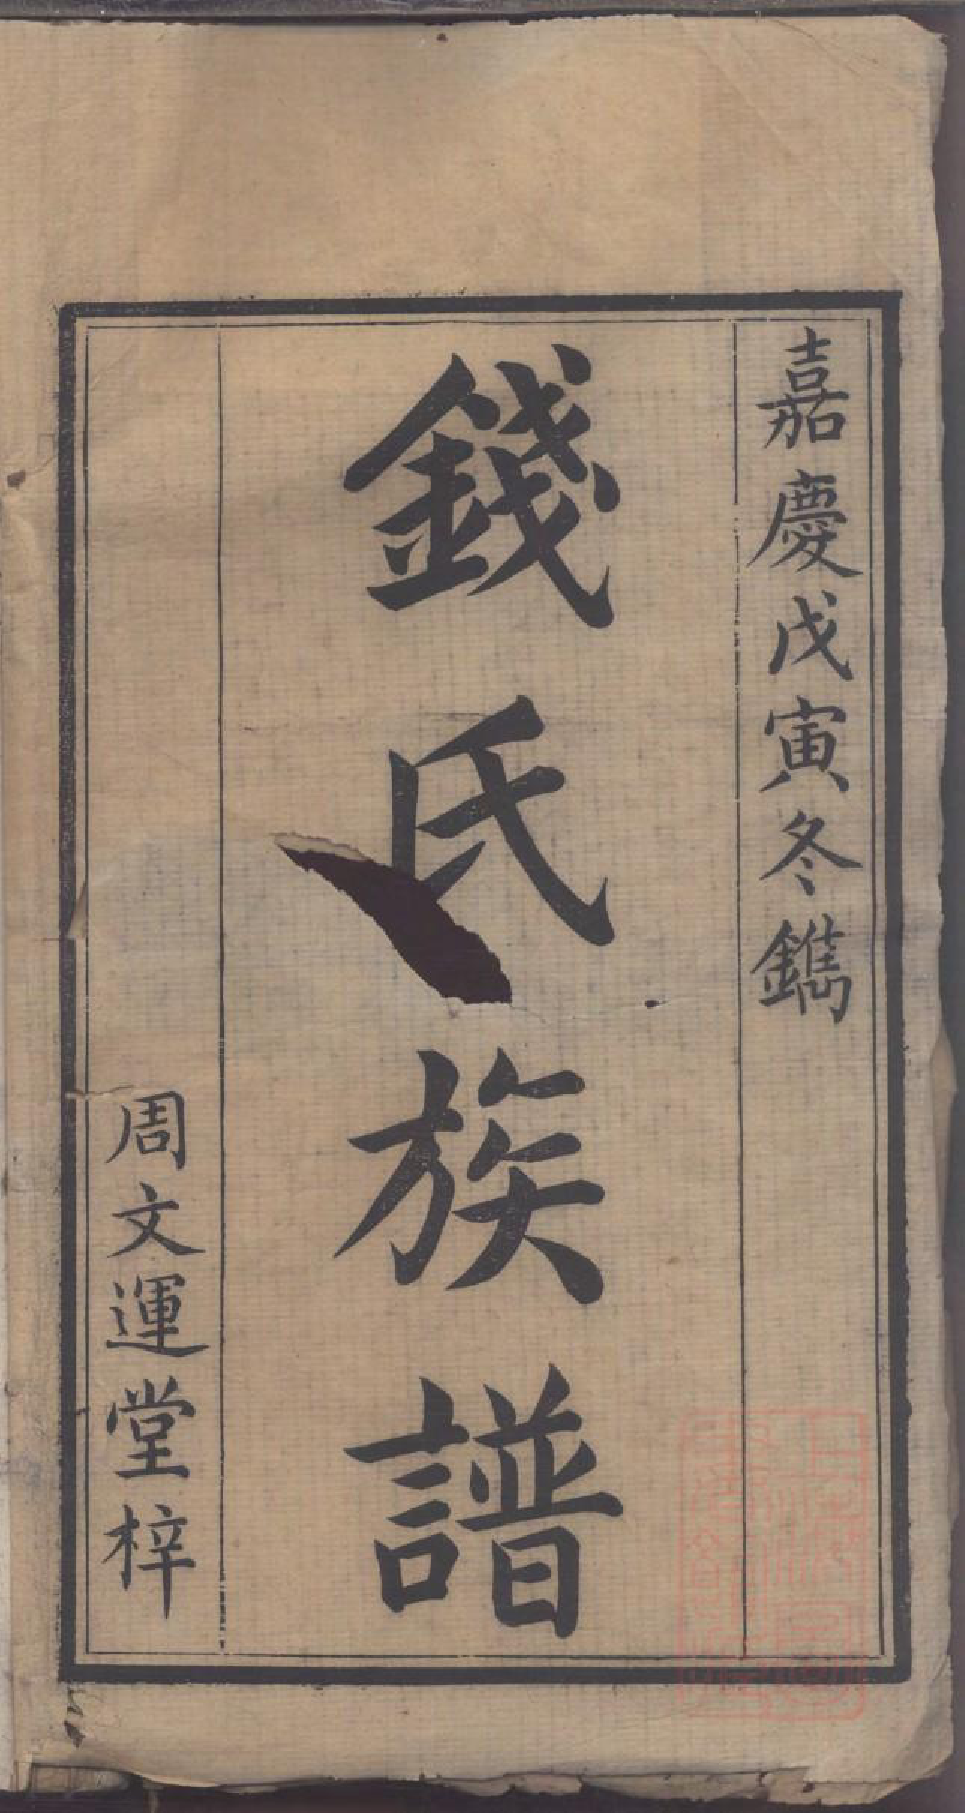 嘉慶戊寅冬鐫
錢氏族譜
周文運堂梓